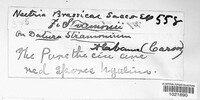 Nectria Brassicae 558
Stramonii
on Datura Stramonium
Alabama (Carver)
The Perithecia are
red spores hyaline.